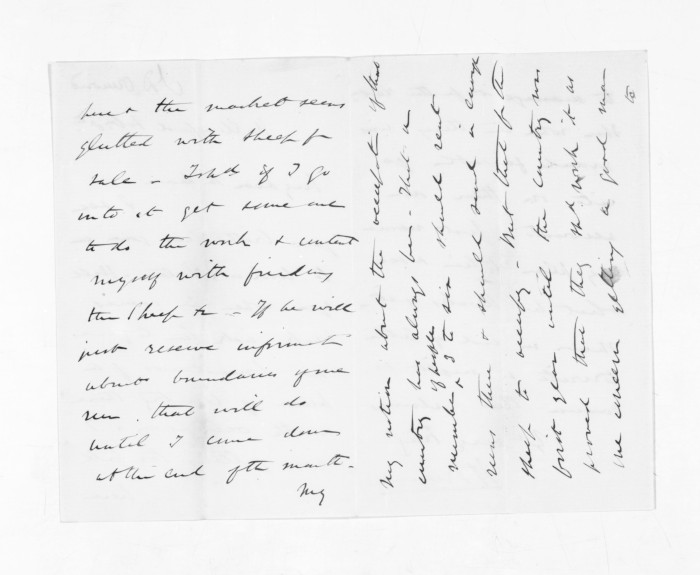 here & the market seems
glutted with sheep for
sale - I shd if I go
into it get some one
to do the work & content
myself with finding
the sheep &c - If he will
just reserve informatn
about boundaries of one
run, that will do
until I come down
at the end of the month -
My
My notion about the occuptn of that
country has always been - That a
number of people 3 to six should rent
runs there & should send in enough
sheep to occupy - But that for the
first year until the country was
proved that they shd work it as
one concern getting a good man
to